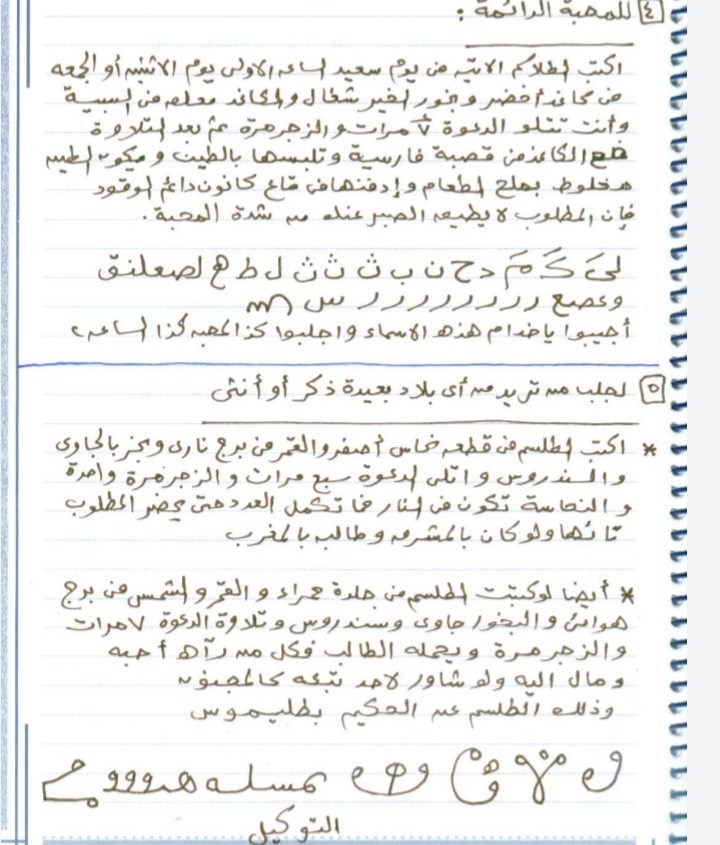 ٤ للمحبة الدائمة :
اكتب الكلام الاتي في يوم سعيد الساعه الاولى يوم الاثنين أو الجمعه
في كاغد أخضر وبخور الخير شغال والكاغد معلق في السيبية
وأنت تتلو الدعوة ٧ مرات والزجرمرة ثم بعد التلاوة
ضع الكاغد في قصبة فارسية وتلبسها بالطين ويكون الطين
مخلوط بملح الطعام وإدفنها في قاع كانون دائم الوقود
فإن المطلوب لا يطيق الصبر عنك من شدة المحبة .
لى ك م د ح ن ب ث ث ث ل ط ھ لصعلنق
وعصيع ر ر ر ر ر ر ر ر س
أجيبوا ياخدام هذه الاسماء واجلبوا كذا لمحبه كذا الساعه ٢
٥ لجلب من تريد من أى بلاد بعيدة ذكر أو أنثى
* اكتب الطلسم في قطعه نحاس أصفر والقمر في برج نارى وبخر بالجاوى
والسندروس واتلى الدعوة سبع مرات والزجرمرة واحدة
والنحاسة تكون في النار فما تكمل العدد حتى يحضر المطلوب
تائها ولو كان بالمشرق وطالب بالمغرب
* أيضا لو كتبت الطلسم في جلدة حمراء والقمر والشمس في برج
هوائى والبخور جاوى وسندروس وتلاوة الدعوة ٧ مرات
والزجرمرة ويحمله الطالب فكل من رآه أحبه
ومال اليه ولو شاور لاحد تبعه كالمجنون
وذلك الطلسم عن الحكيم بطليموس
التوكيل